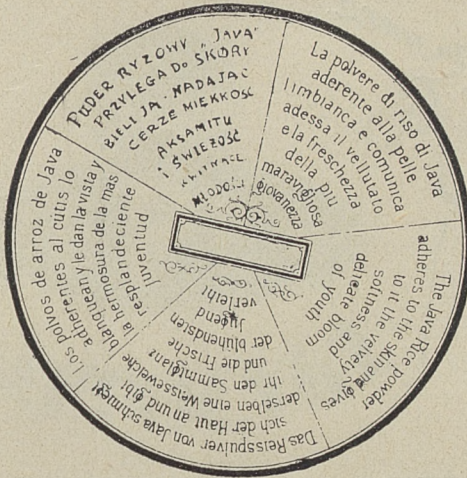 PUDER RYZOWY „JAVA"
PRZYLEGA DO SKÓRY
BIELI JĄ - NADAJĄC
CERZE MIĘKKOŚĆ
AKSAMITU
I ŚWIEŻOŚĆ
MŁODO
La polvere di riso di Java
aderente alla pelle
l'imbianca e comunica
adessa il vellutato
e la freschezza
della più
maravigliosa
giovanezza
The Java Rice powder
adheres to the skin and gives
to it the velvety
softness and
delicate bloom
of youth
Das Reisspulver von Java schmiegt
sich der Haut an und gibt
derselben eine Weisseweiche
ihr den Sammtglanz
und die Frische
der blühendsten
Jugend
verleiht
Los polvos de arroz de Java
adherentes al cutis lo
blanquean y le dan la vista y
la hermosura de la mas
resplandeciente
juventud